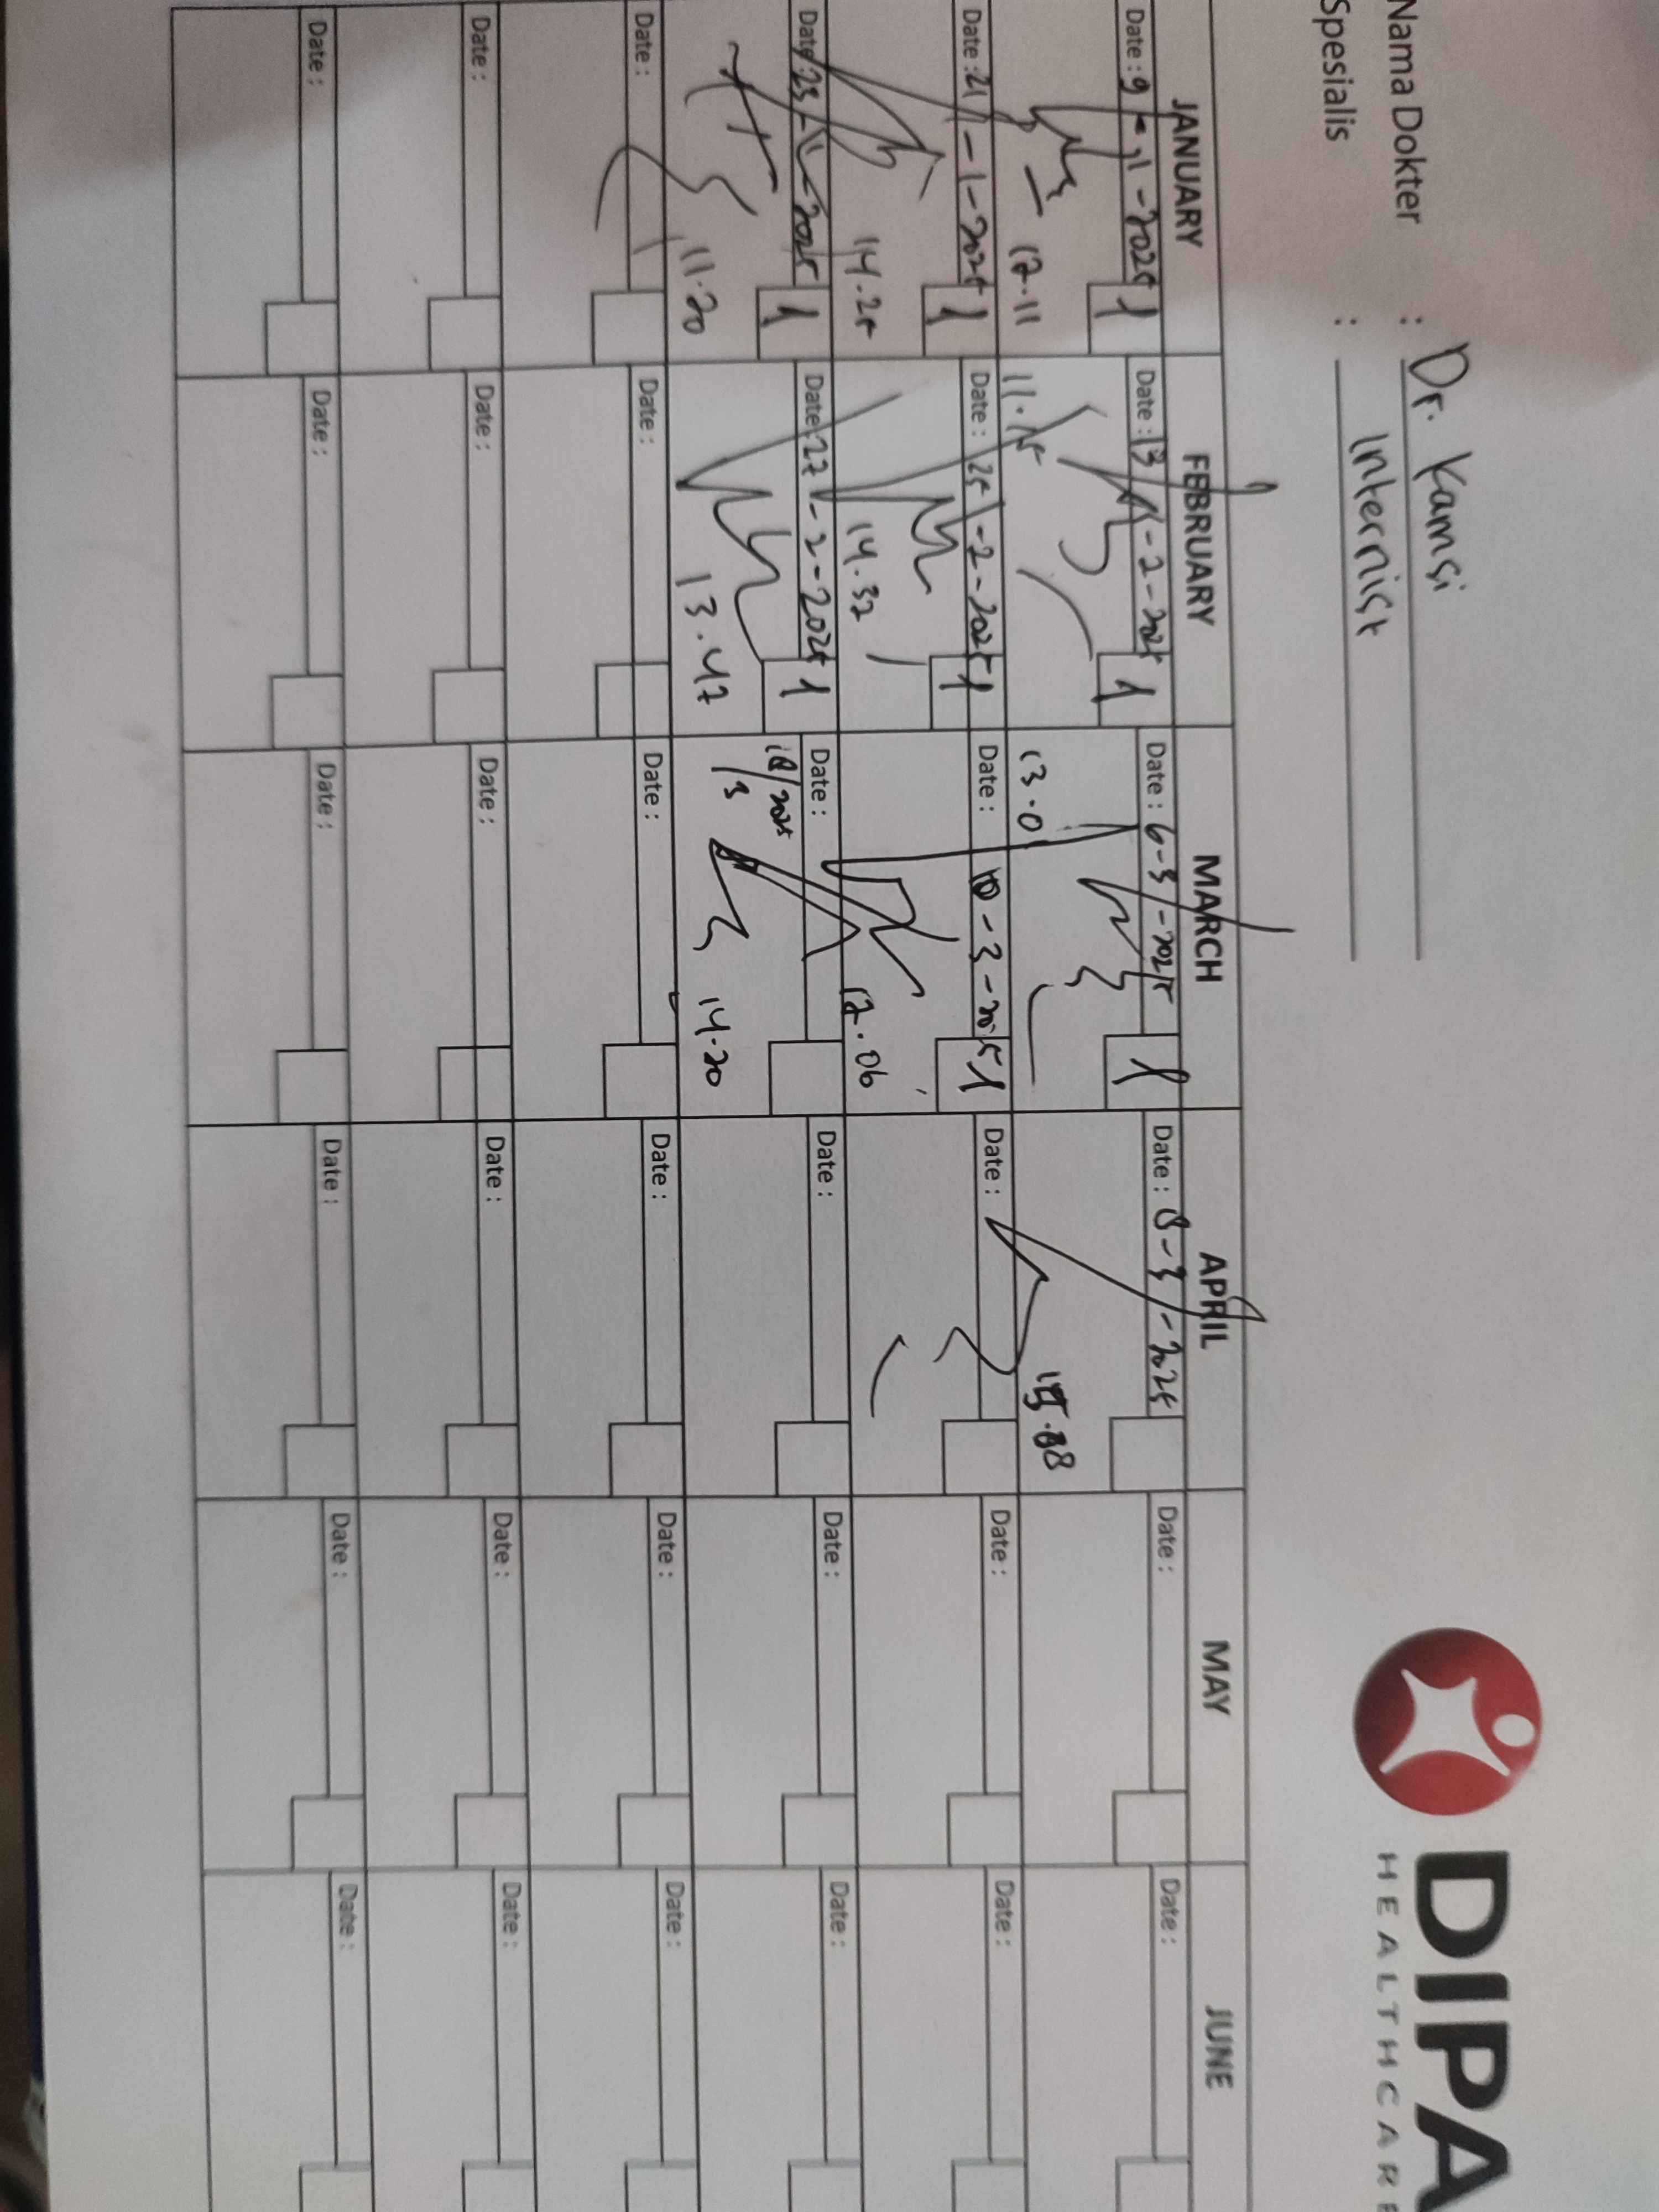 DIPA
HEALTHCARE
Nama Dokter : Dr. Kamsi
Spesialis : Internist
JANUARY FEBRUARY MARCH APRIL MAY JUNE
Date : 9-1-2025 1 Date : 13-2-2025 1 Date : 6-3-2025 1 Date : 8-3-2025 Date : Date :
12.11 11.15 13.01
Date : 21-1-2025 1 Date : 25-2-2025 1 Date : 10-3-2025 1 Date : Date : Date :
14.25 14.32 12.06
Date : 23-1-2025 1 Date : 27-2-2025 1 Date : 18/3 2025 Date : Date : Date :
11.20 13.47 14.20
Date : Date : Date : Date : Date : Date :
Date : Date : Date : Date : Date : Date :
Date : Date : Date : Date : Date : Date :